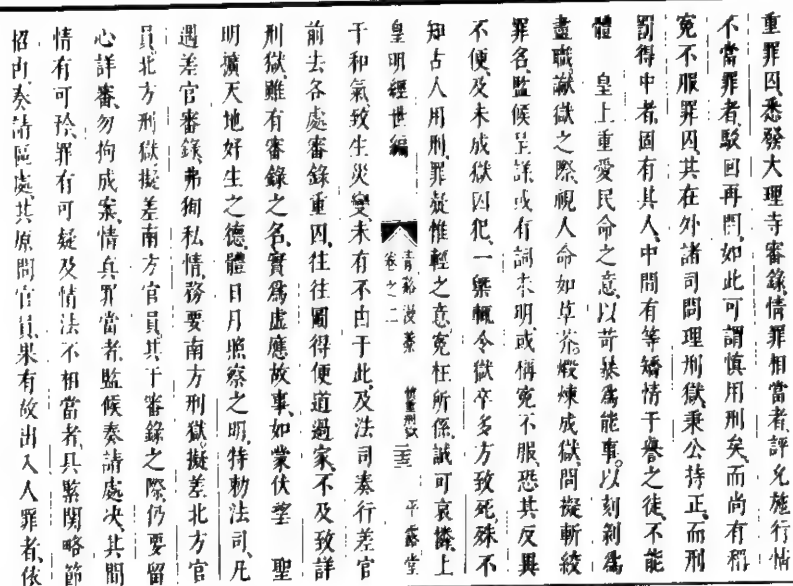 重罪囚悉發大理寺審錄情罪相當者評允施行情
不當罪者駁回再問如此可謂慎用刑矣而尚有稱
冤不服罪囚其在外諸司問理刑獄秉公持正而刑
罰得中者固有其人中間有等矯情干譽之徒不能
體　皇上重愛民命之意以苛暴為能事以刻剝為
盡職讞獄之際視人命如草芥煅煉成獄問擬斬絞
罪名監候呈詳或有詞未明或稱冤不服恐其反異
不便及未成獄囚犯一槩輒令獄卒多方致死殊不
知古人用刑罪疑惟輕之意冤枉所係誠可哀憐上
皇明經世編　卷之二　青谿漫藁　慎重刑獄　三　平露堂
干和氣致生災變未有不由于此及法司奏行差官
前去各處審錄重囚往往圖得便道過家不及致詳
刑獄雖有審錄之名實為虛應故事如蒙伏望　聖
明擴天地好生之德體日月照察之明特勅法司凡
遇差官審錄弗徇私情務要南方刑獄擬差北方官
員北方刑獄擬差南方官員其于審錄之際仍要留
心詳審勿拘成案情真罪當者監候奏請處決其間
情有可矜罪有可疑及情法不相當者具緊関略節
招由奏請區處其原問官員果有故出入人罪者依